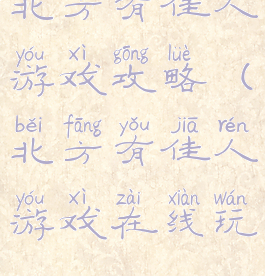 北方有佳人
yóu xì gōng lüè
游戏攻略（
běi fāng yǒu jiā rén
北方有佳人
yóu xì zài xiàn wán
游戏在线玩